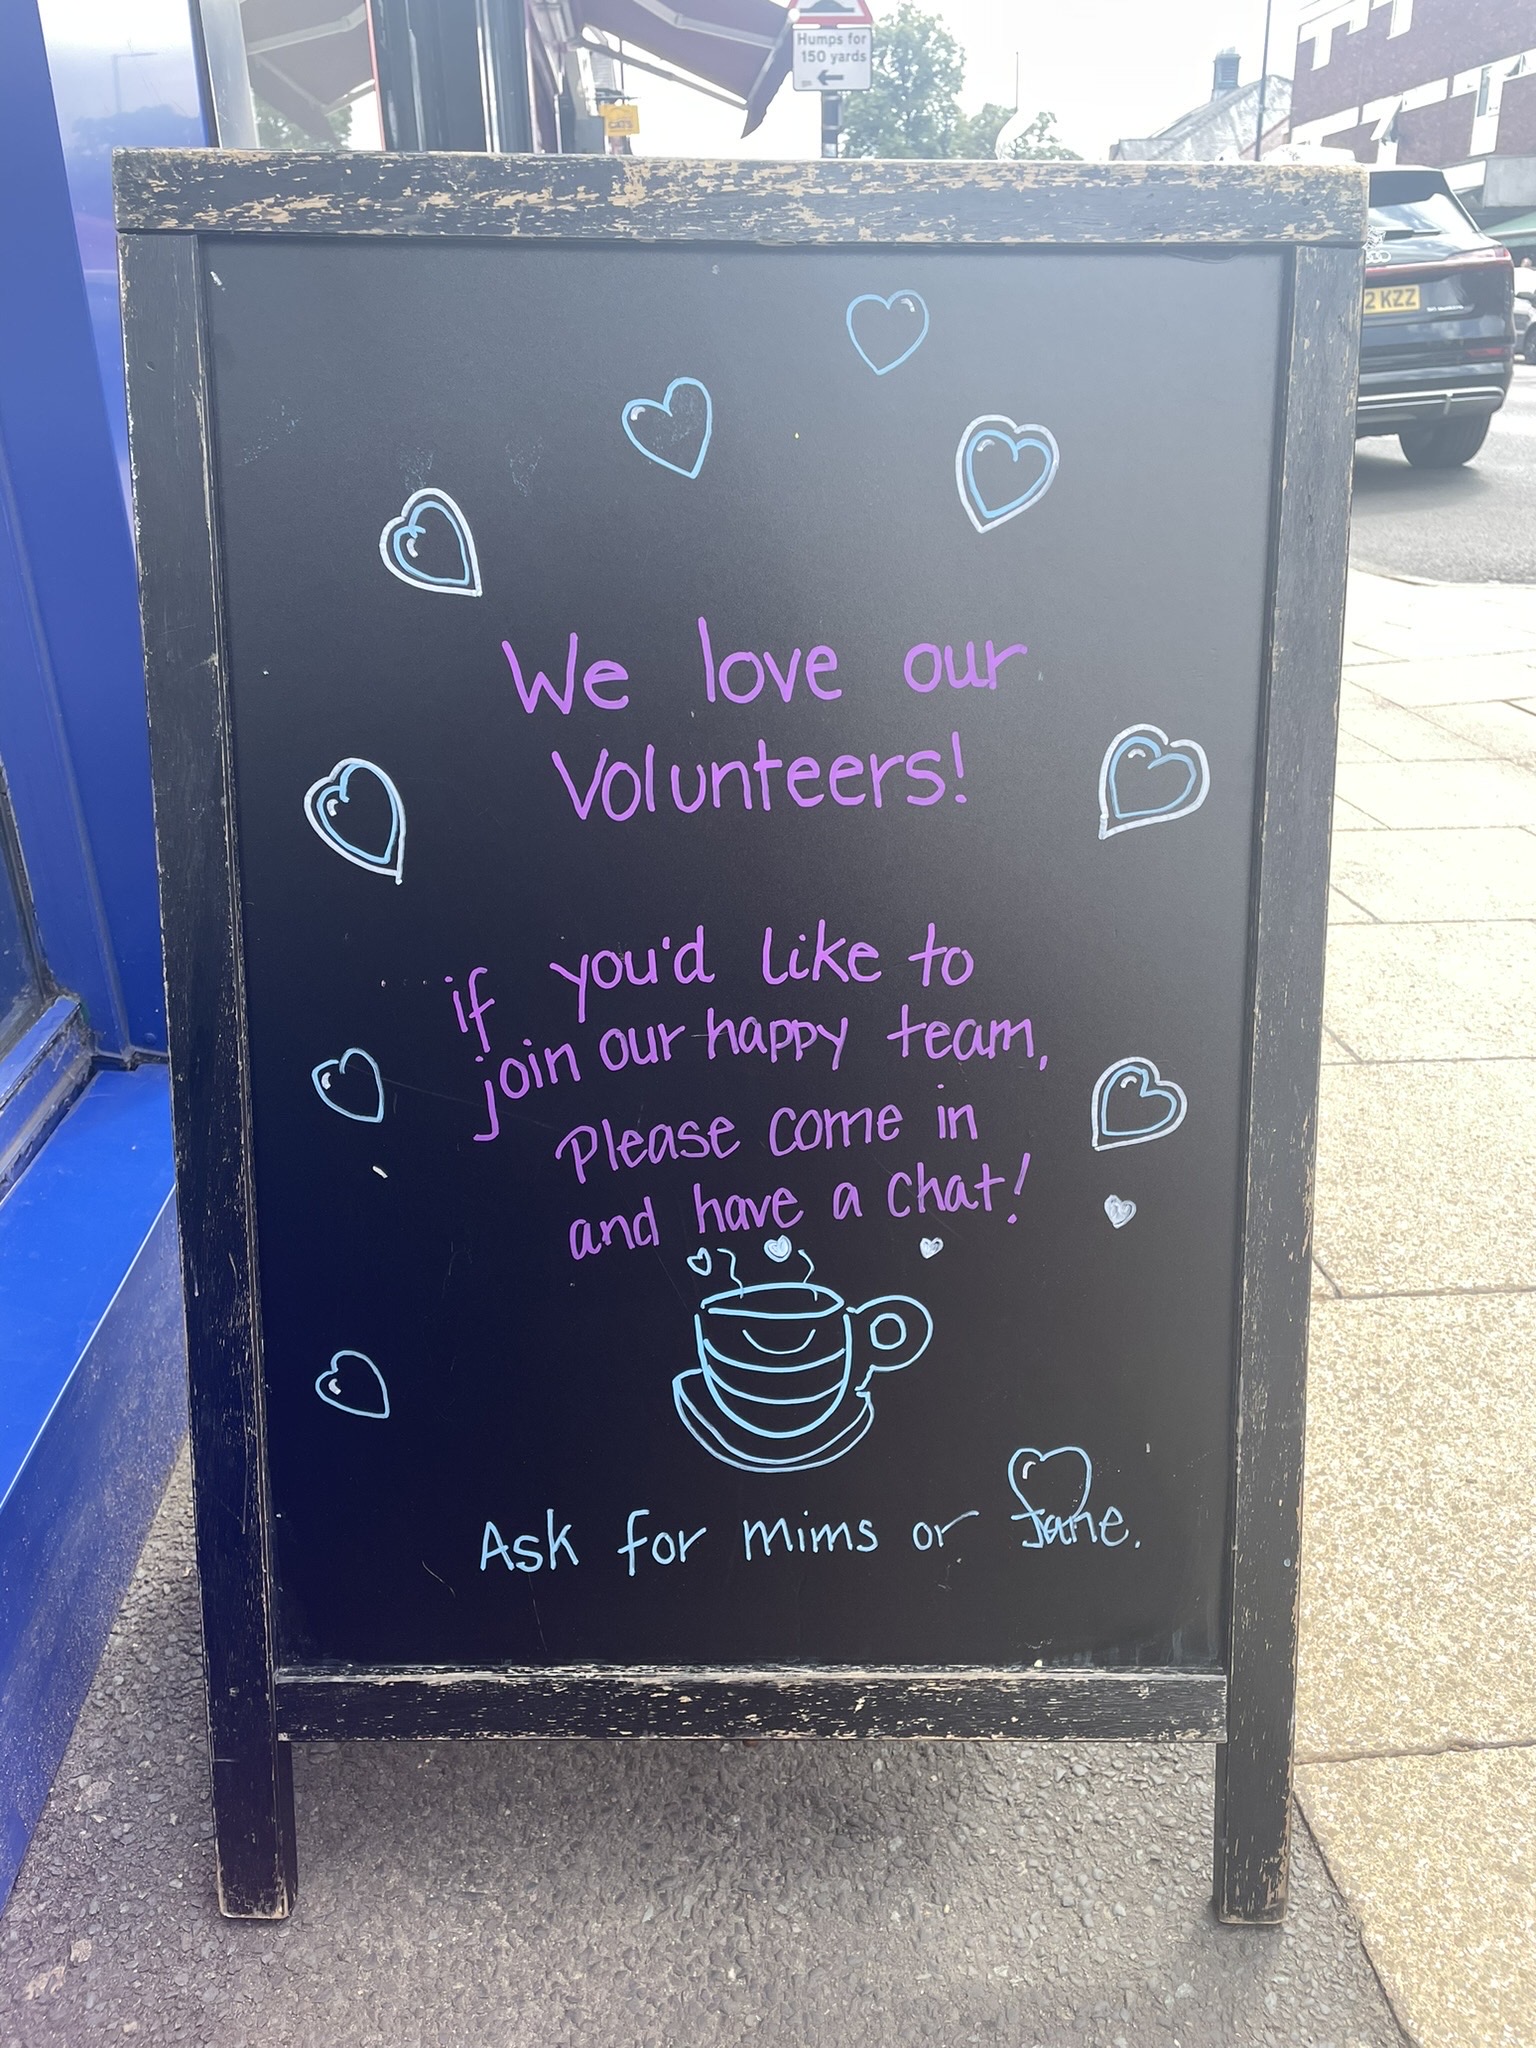 Humps for
150 yards
CATS
2 KZZ
We love our
Volunteers!
if you'd like to
join our happy team,
Please come in
and have a chat!
Ask for mims or Jane.